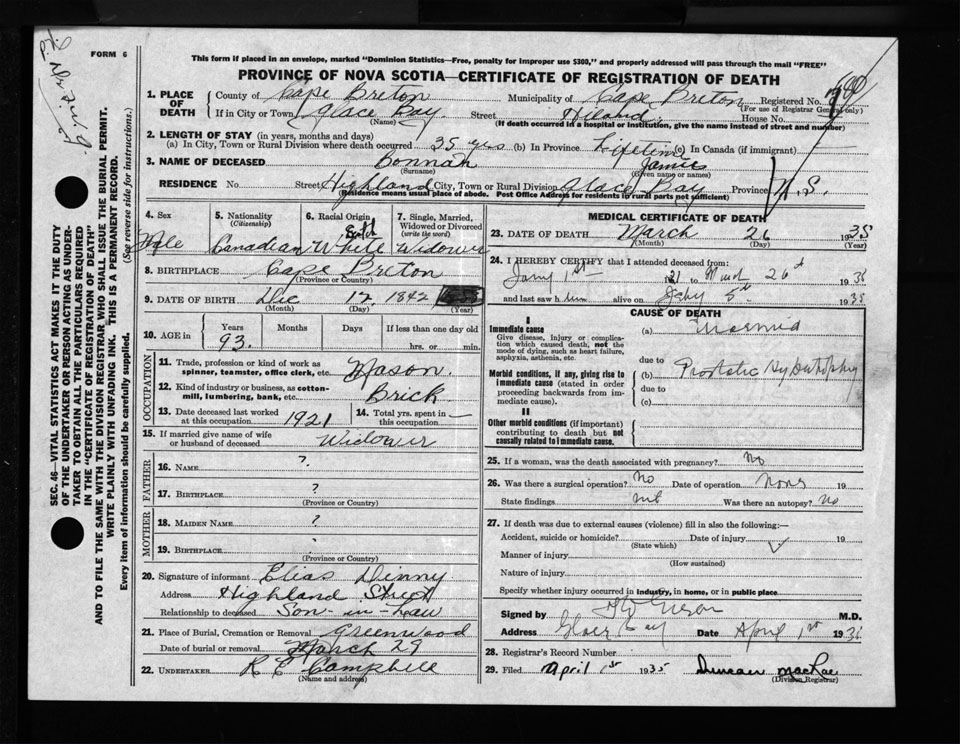 FORM 6
This form if placed in an envelope, marked "Dominion Statistics—Free, penalty for improper use $300," and properly addressed will pass through the mail "FREE"
PROVINCE OF NOVA SCOTIA—CERTIFICATE OF REGISTRATION OF DEATH
1. PLACE OF DEATH County of Cape Breton Municipality of Cape Breton Registered No. (For use of Registrar General only)
If in City or Town Glace Bay (Name) Street House No.
(If death occurred in a hospital or institution, give the name instead of street and number)
2. LENGTH OF STAY (in years, months and days)
(a) In City, Town or Rural Division where death occurred 35 yrs (b) In Province Lifetime (c) In Canada (if immigrant) —
3. NAME OF DECEASED Bonnan (Surname) James (Given name or names)
RESIDENCE No. Street Highland City, Town or Rural Division Glace Bay Province N.S.
(Residence means usual place of abode. Post Office Address for residents in rural parts not sufficient)
4. Sex Male
5. Nationality (Citizenship) Canadian
6. Racial Origin Scotch White
7. Single, Married, Widowed or Divorced (write the word) Widower
8. BIRTHPLACE Cape Breton (Province or Country)
9. DATE OF BIRTH Dec 12 1842 (Month) (Day) (Year)
10. AGE in Years 93. Months Days If less than one day hrs. or min.
OCCUPATION
11. Trade, profession or kind of work as spinner, teamster, office clerk, etc. Mason.
12. Kind of industry or business, as cotton-mill, lumbering, bank, etc. Brick
13. Date deceased last worked at this occupation 1921
14. Total yrs. spent in this occupation —
15. If married give name of wife or husband of deceased Widower
FATHER
16. NAME ?
17. BIRTHPLACE ? (Province or Country)
MOTHER
18. MAIDEN NAME ?
19. BIRTHPLACE (Province or Country)
20. Signature of informant Elias Dinny
Address Highland Street
Relationship to deceased Son-in-Law
21. Place of Burial, Cremation or Removal Greenwood
Date of burial or removal March 29
22. UNDERTAKER R C Campbell (Name and address)
MEDICAL CERTIFICATE OF DEATH
23. DATE OF DEATH March 26 1935 (Month) (Day) (Year)
24. I HEREBY CERTIFY that I attended deceased from:
Jany 1st March 26th
and last saw him alive on 5th 1935
CAUSE OF DEATH
I
Immediate cause
Give disease, injury or complication which caused death, not the mode of dying, such as heart failure, asphyxia, asthenia, etc.
(a) Uraemia
due to
Morbid conditions, if any, giving rise to immediate cause (stated in order proceeding backwards from immediate cause).
(b) Prostatic Hypertrophy
due to
(c)
II
Other morbid conditions (if important) contributing to death but not causally related to immediate cause.
25. If a woman, was the death associated with pregnancy? No
26. Was there a surgical operation? No Date of operation None 19
State findings Was there an autopsy? No
27. If death was due to external causes (violence) fill in also the following:—
Accident, suicide or homicide? (State which) Date of injury 19
Manner of injury (How sustained)
Nature of injury
Specify whether injury occurred in industry, in home, or in public place
Signed by M.D.
Address Glace Bay Date April 1st
28. Registrar's Record Number
29. Filed April 1st 1935 Duncan MacRae (Division Registrar)
SEC. 46—VITAL STATISTICS ACT MAKES IT THE DUTY
OF THE UNDERTAKER OR PERSON ACTING AS UNDER-
TAKER TO OBTAIN ALL THE PARTICULARS REQUIRED
IN THE "CERTIFICATE OF REGISTRATION OF DEATH"
AND TO FILE THE SAME WITH THE DIVISION REGISTRAR WHO SHALL ISSUE THE BURIAL PERMIT.
WRITE PLAINLY WITH UNFADING INK. THIS IS A PERMANENT RECORD.
Every item of information should be carefully supplied. (See reverse side for instructions.)